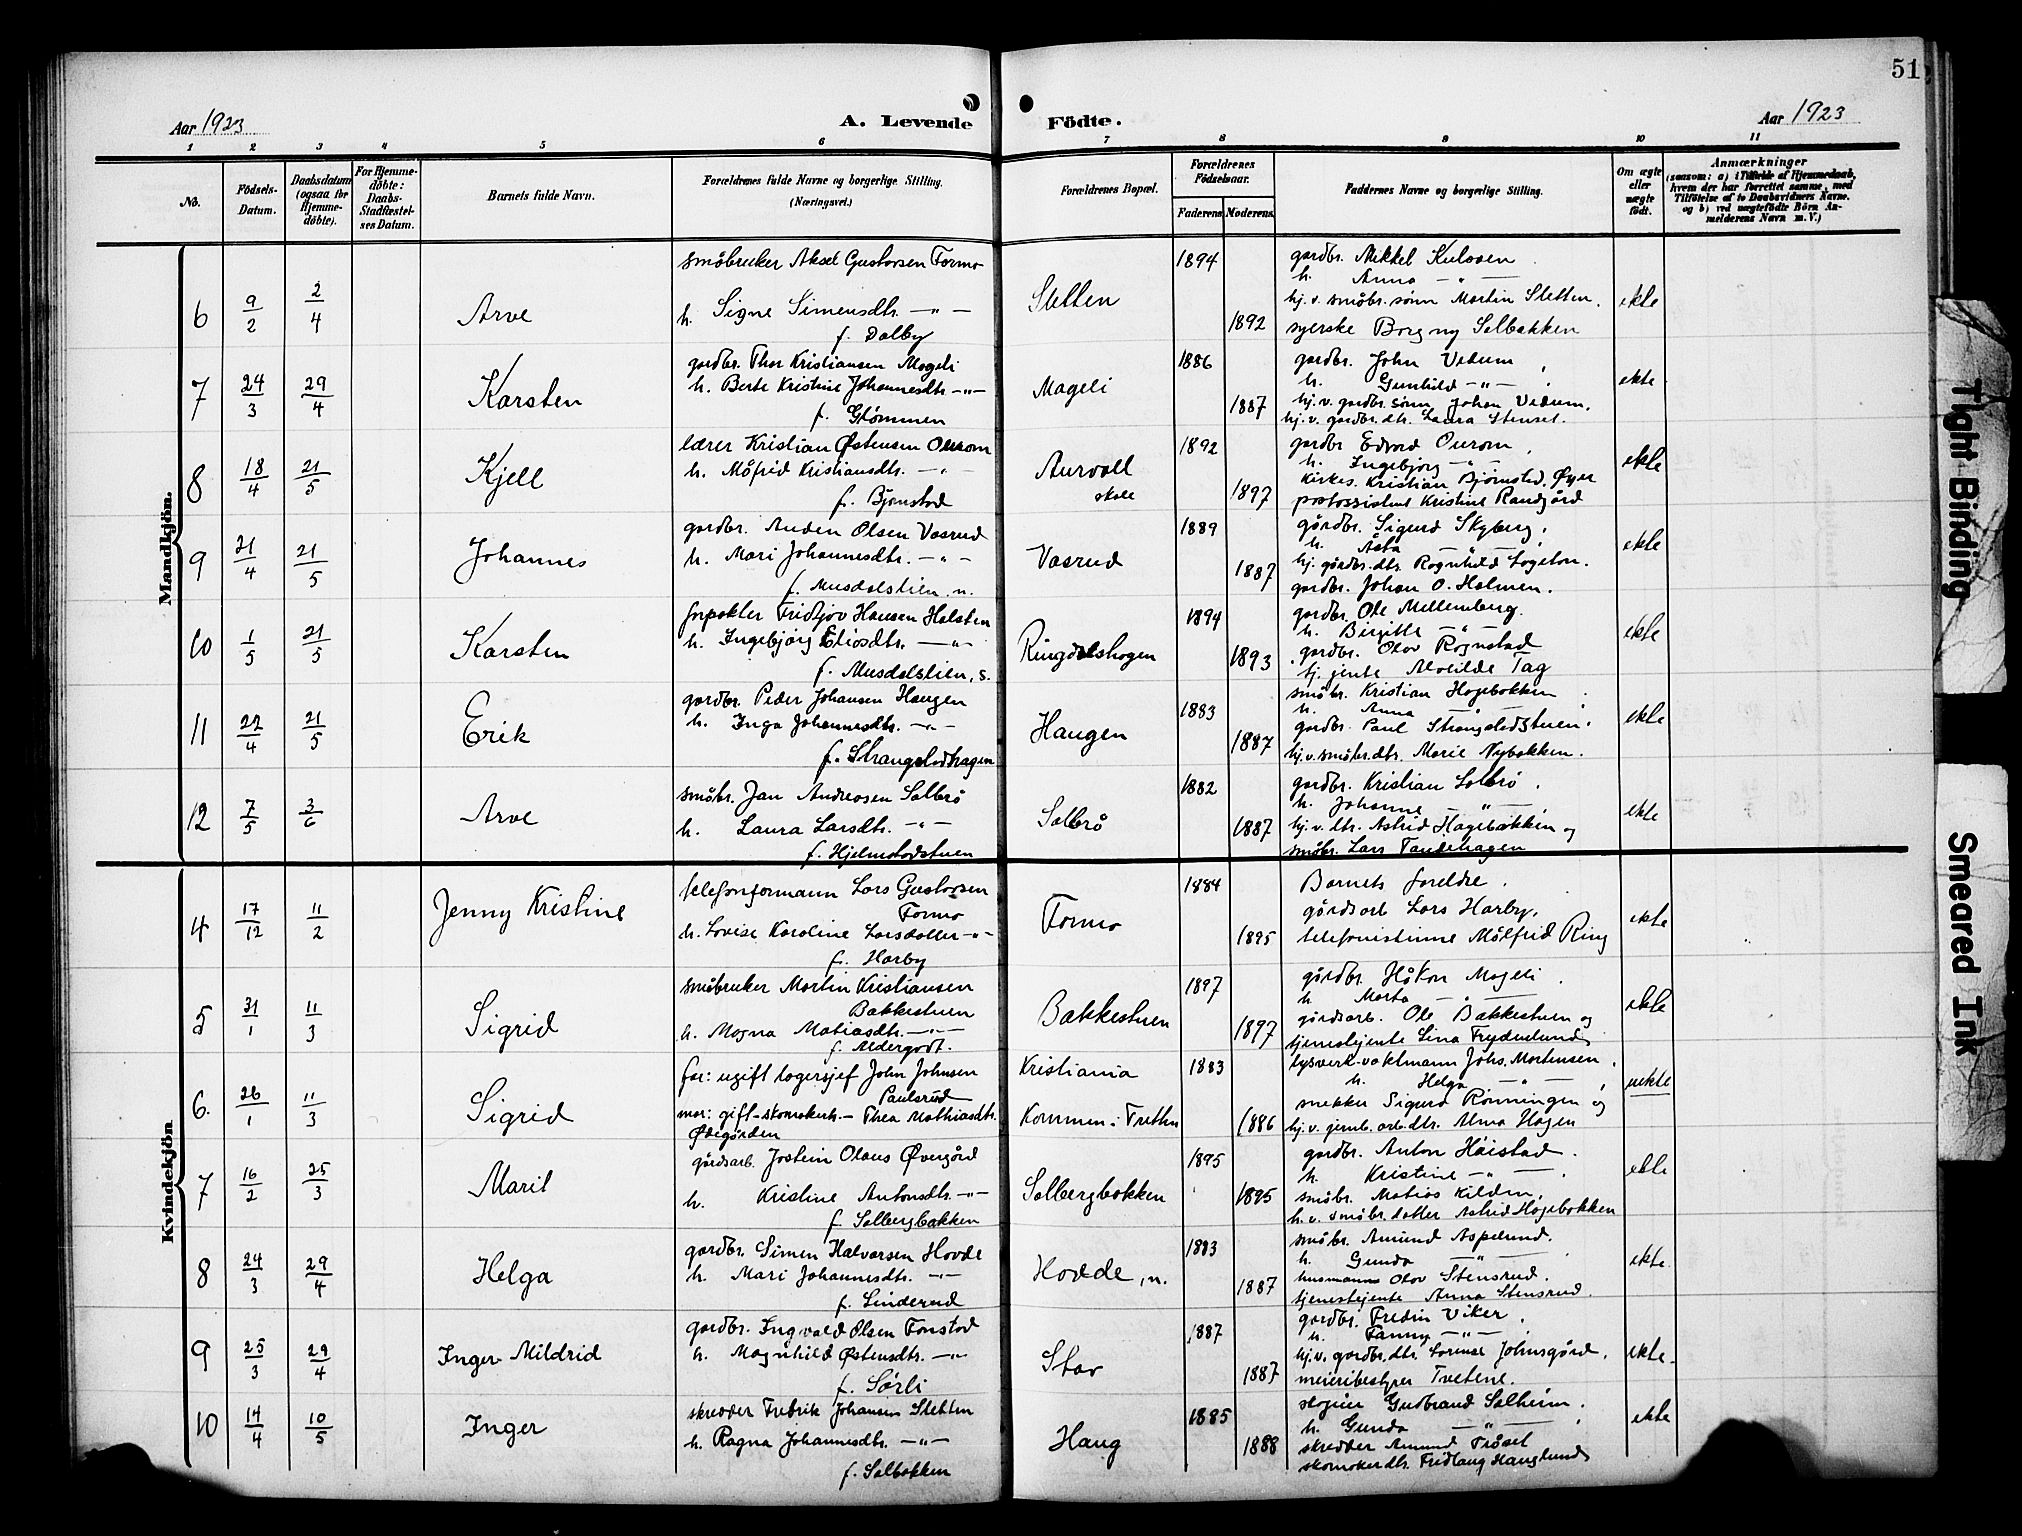 51
Aar 1923
A. Levende Födte.
Aar 1923
1 2 3 4 5 6 7 8 9 10 11
No.
Födsels-Datum.
Daabsdatum (ogsaa for Hjemmedöbte).
For Hjemmedöbte: Daabs-Stadfæstelses Datum.
Barnets fulde Navn.
Forældrenes fulde Navne og borgerlige Stilling.
(Næringsvei.)
Forældrenes Bopæl.
Forældrenes Födselsaar.
Faderens Moderens
Faddernes Navne og borgerlige Stilling.
Om ægte eller uægte födt.
Anmærkninger
(saasom: a) i Tilfælde af Hjemmedaab, hvem der har forrettet samme, med Tilföielse af to Daabsvidners Navne, og b) ved uægtefödte Börn Anmelderens Navn m. V.)
Mandkjön.
6 9/2 2/4 Arve
småbruker Aksel Gustavsen Formo
h. Signe Simensdtr. —"—
f. Dalby
Sletten
1894
1892
gardbr. Mikkel Kuloven
h. Anna —"—
hj. v. småbr. sønn Martin Sletten.
syerske Borgny Solbakken
ekte
7 24/3 29/4 Karsten
gardbr. Thor Kristiansen Mageli
h. Berte Kristine Johannesdtr. —"—
f. Glømmen
Mageli
1886
1887
gardbr. John Vedum,
h. Gunhild —"—
hj. v. gardbr. sønn Johan Vedum,
hj. v. gardbr. dtr. Laura Stenset.
ekte
8 18/4 21/5 Kjell
lærer Kristian Østensen Ourom
h. Målfrid Kristiansdtr. —"—
f. Bjørnstad
Aurvoll
skole
1892
1897
gardbr. Edvard Ourom,
h. Ingebjørg —"—
Kirkes. Kristian Bjørnstad, Øyer
postassistent Kristine Randgård
ekte
9 21/4 21/5 Johannes
gardbr. Anden Olsen Vasrud
h. Mari Johannesdtr. —"—
f. Musdalslien, n.
Vasrud
1889
1887
gårdbr. Sigurd Skyberg,
h. Åsta —"—
hj. gårdbr. dtr. Ragnhild Lageton.
gardbr. Johan O. Holmen.
ekte
10 1/5 21/5 Karsten
forpakter Fridtjov Hansen Holsten
h. Ingebjørg Eliasdtr. —"—
f. Musdalslien, s.
Ringdalshagen
1894
1893
gardbr. Ole Mellemberg.
h. Birgitte —"—
gardbr. Olov Rognstad
hj. jente Alvilde Tag
ekte
11 22/4 21/5 Erik
gardbr. Peder Johansen Haugen
h. Inga Johannesdtr. —"—
f. Strangstadhagen
Haugen
1883
1887
småbr. Kristian Hagebakken
h. Anna —"—
gardbr. Paul Strangstadstuen.
hj. v. småbr. dtr. Marie Nybakken.
ekte
12 7/5 3/6 Arve
småbr. Jan Andreasen Solbrå
h. Laura Larsdtr. —"—
f. Hjelmstadstuen
Solbrå
1882
1887
gardbr. Kristian Solbrå.
h. Johanne —"—
hj. v. dtr. Astrid Hagebakken og
småbr. Lars Tandehagen
ekte
Kvindekjön
4 17/12 11/2 Jenny Kristine
telefonformann Lars Gustavsen
Formo
h. Lovise Karoline Larsdatter —"—
f. Harby
Formo
1884
1895
Barnets foreldre.
gårdsarb Lars Harby,
telefonistinne Målfrid Ring
ekte
5 31/1 11/3 Sigrid
småbruker Martin Kristiansen
Bakkestuen
h. Magna Matiasdtr. —"—
f. Aldergodt.
Bakkestuen
1897
1897
gårdbr. Håkon Mageli.
h. Marta —"—
gårdsarb. Ole Bakkestuen og
tjenestejente Lina Frydenlund
ekte
6. 26/1 11/3 Sigrid
far: ugift lagersjef John Johnsen
Paulsrud
mor: gift-skomakerh. — Thea Mathiasdtr.
Ødegården
Kristiania
Kommen i Tretten
1883
1886
lysverk-vaktmann Johs. Mortensen,
h. Helga —"—
snekker Sigurd Rønningen og
hj. v. jernb. arb. dtr. Alma Hagen
uekte
7 16/2 25/3 Marit
gårdsarb. Jostein Olaus Øvergård
h. Kristine Antonsdtr. —"—
f. Solbergbakken
Solbergbakken
1895
1895
gardbr. Anton Håistad.
h. Kristine —"—
småbr. Matias Kilden,
h. v. småbr. datter Astrid Hagebakken
ekte
8 24/3 29/4 Helga
gardbr. Simen Halvorsen Hovde
h. Mari Johannesdtr. —"—
f. Linderud
Hovde, n.
1883
1887
småbr. Amund Aspelund.
h. Gunda —"—
husmann Olov Stensrud.
tjenestejente Anna Stensrud.
ekte.
9 25/3 29/4 Inger Mildrid
gardbr. Ingvald Olsen Fonstad
h. Magnhild Østensdtr. —"—
f. Sørli
Stav
1887
1887
gardbr. Fredrin Viker,
h. Fanny —"—
hj. v. gardbr. dtr. Lorense Johnsgård.
meieribestyrer Tvetene.
ekte.
10 14/4 10/5 Inger
skredder Fredrik Johansen Sletten
h. Ragna Johannesdtr. —"—
f. Solbakken
Haug
1885
1888
Gudbrand Solheim.
h. Gunda —"—
skredder Amund Tråset
skomaker dtr. Fridlaug Hauglund
ekte
Tight Binding
Smeared Ink